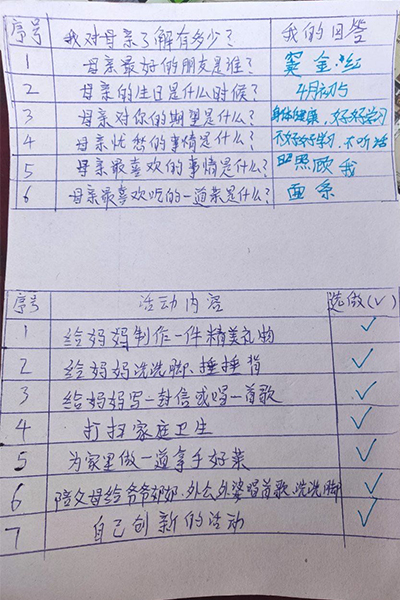 序号 我对母亲了解有多少? 我的回答
1 母亲最好的朋友是谁? 窦金红
2 母亲的生日是什么时候? 4月初5
3 母亲对你的期望是什么? 身体健康,好好学习
4 母亲忧愁的事情是什么? 不好好学习.不听话
5 母亲最喜欢的事情是什么? 照顾我
6 母亲最喜欢吃的一道菜是什么? 面条
序号 活动内容 选做(√)
1 给妈妈制作一件精美礼物 √
2 给妈妈洗洗脚、捶捶背 √
3 给妈妈写一封信或唱一首歌 √
4 打扫家庭卫生 √
5 为家里做一道拿手好菜 √
6 陪父母给爷爷奶奶、外公外婆唱首歌、洗洗脚 √
7 自己创新的活动 √